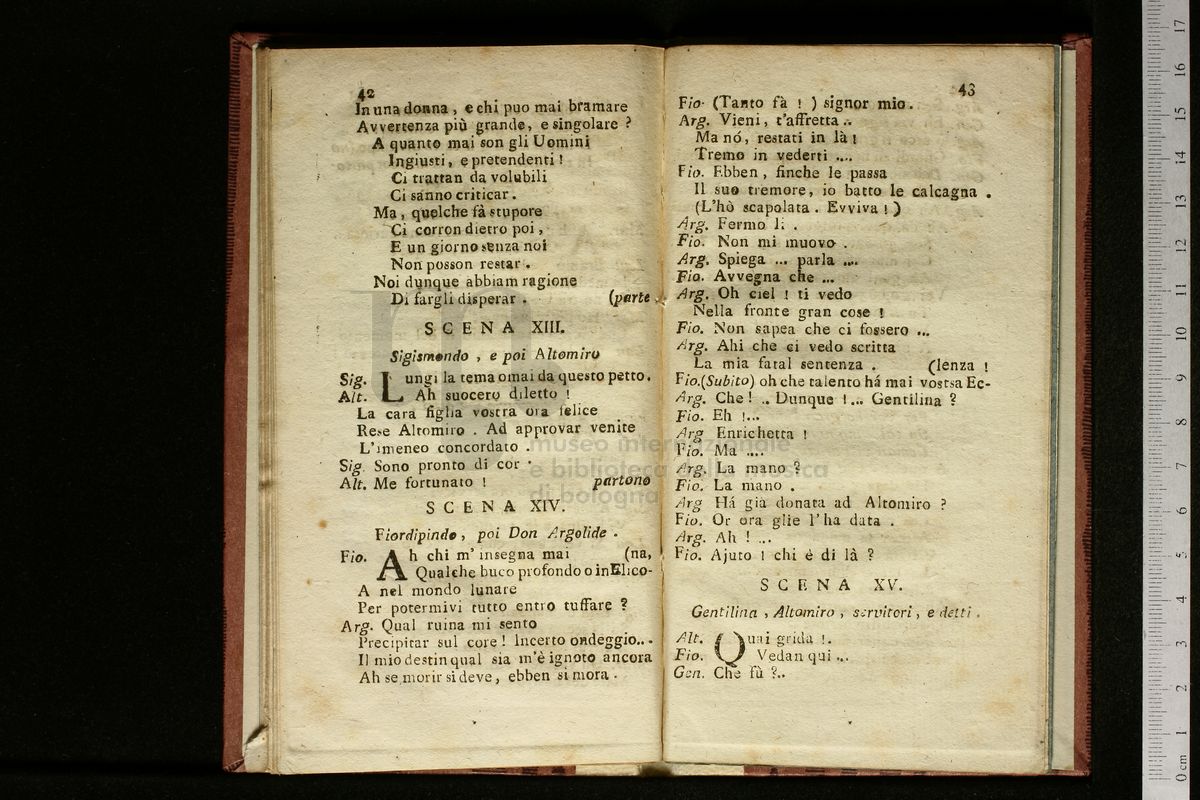 42
In una donna, e chi puo mai bramare
Avvertenza più grande, e singolare?
A quanto mai son gli Uomini
Ingiusti, e pretendenti!
Ci trattan da volubili
Ci sanno criticar.
Ma, quelche fà stupore
Ci corron dietro poi,
E un giorno senza noi
Non posson restar.
Noi dunque abbiam ragione
Di fargli disperar. (parte
SCENA XIII.
Sigismondo, e poi Altomiro
Sig. Lungi la tema omai da questo petto.
Alt. Ah suocero diletto!
La cara figlia vostra ora felice
Rese Altomiro. Ad approvar venite
L'imeneo concordato.
Sig. Sono pronto di cor.
Alt. Me fortunato! partono
SCENA XIV.
Fiordipindo, poi Don Argolide.
Fio. Ah chi m'insegna mai (na,
Qualche buco profondo o in Elico-
A nel mondo lunare
Per potermivi tutto entro tuffare?
Arg. Qual ruina mi sento
Precipitar sul core! Incerto ondeggio...
Il mio destin qual sia m'è ignoto ancora
Ah se morir si deve, ebben si mora.
43
Fio. (Tanto fà!) signor mio.
Arg. Vieni, t'affretta..
Ma nó, restati in là!
Tremo in vederti ....
Fio. Ebben, finche le passa
Il suo tremore, io batto le calcagna.
(L'hò scapolata. Evviva!)
Arg. Fermo lì.
Fio. Non mi muovo.
Arg. Spiega ... parla ....
Fio. Avvegna che ...
Arg. Oh ciel! ti vedo
Nella fronte gran cose!
Fio. Non sapea che ci fossero ...
Arg. Ahi che ci vedo scritta
La mia fatal sentenza. (lenza!
Fio.(Subito) oh che talento há mai vostsa Ec-
Arg. Che! .. Dunque!... Gentilina?
Fio. Eh!...
Arg Enrichetta!
Fio. Ma ....
Arg. La mano?
Fio. La mano.
Arg Há già donata ad Altomiro?
Fio. Or ora glie l'ha data.
Arg. Ah! ...
Fio. Ajuto! chi è di là?
SCENA XV.
Gentilina, Altomiro, servitori, e detti.
Alt. Quai grida!.
Fio. Vedan qui ...
Gen. Che fù?..
museo internazionale
e biblioteca della musica
di bologna
0 cm 1 2 3 4 5 6 7 8 9 10 11 12 13 14 15 16 17